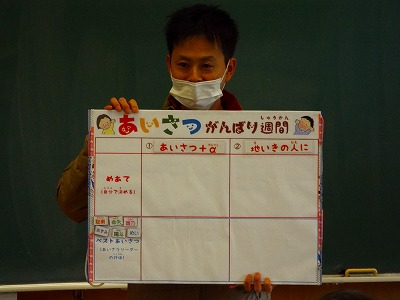 あいさつがんばり週間
しゅうかん
① あいさつ+α
② 地いきの人に
めあて
(自分で決める)
ベストあいさつ
(あいさつリーダー
の評価)